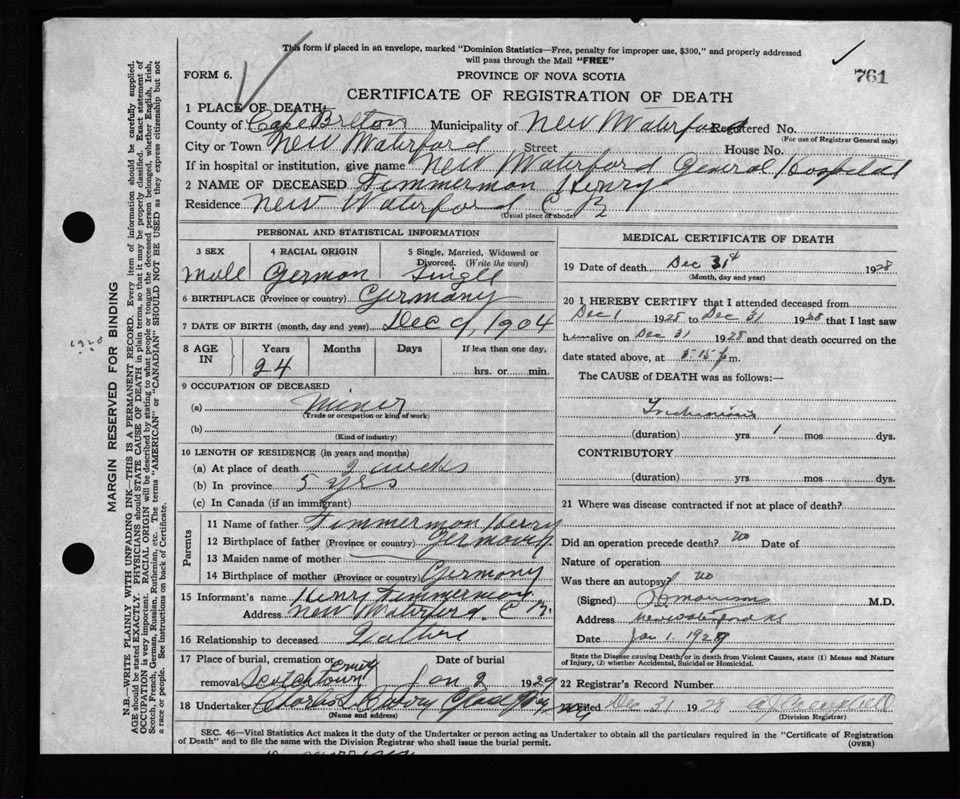 This form if placed in an envelope, marked "Dominion Statistics—Free, penalty for improper use, $300," and properly addressed
will pass through the Mail "FREE"
761
FORM 6.
PROVINCE OF NOVA SCOTIA
CERTIFICATE OF REGISTRATION OF DEATH
1 PLACE OF DEATH:
County of Cape Breton Municipality of New Waterford Registered No.
(For use of Registrar General only)
City or Town New Waterford Street House No.
If in hospital or institution, give name New Waterford General Hospital
2 NAME OF DECEASED Timmermon Henry
Residence New Waterford C B
(Usual place of abode)
PERSONAL AND STATISTICAL INFORMATION
3 SEX
4 RACIAL ORIGIN
5 Single, Married, Widowed or
Divorced. (Write the word)
Male German Single
6 BIRTHPLACE (Province or country) Germany
7 DATE OF BIRTH (month, day and year) Dec 9, 1904
8 AGE
IN
Years
Months
Days
If less than one day,
24
hrs. or min.
9 OCCUPATION OF DECEASED
(a) Miner
(Trade or occupation or kind of work)
(b)
(Kind of industry)
10 LENGTH OF RESIDENCE (in years and months)
(a) At place of death 2 weeks
(b) In province 5 yrs
(c) In Canada (if an immigrant)
Parents
11 Name of father Timmermon Henry
12 Birthplace of father (Province or country) Germany
13 Maiden name of mother
14 Birthplace of mother (Province or country) Germany
15 Informant's name Henry Timmermon
Address New Waterford. C B.
16 Relationship to deceased Father
17 Place of burial, cremation or
removal Scotchtown
Date of burial
Jan 2 1929
18 Undertaker Glace Bay
(Name and address)
MEDICAL CERTIFICATE OF DEATH
19 Date of death Dec 31st 1928
(Month, day and year)
20 I HEREBY CERTIFY that I attended deceased from
Dec 1 1928 to Dec 31 1928 that I last saw
h alive on Dec 31 1928 and that death occurred on the
date stated above, at 5-15 p m.
The CAUSE of DEATH was as follows:—
(duration) yrs 1 mos dys.
CONTRIBUTORY
(duration) yrs. mos. dys.
21 Where was disease contracted if not at place of death?
Did an operation precede death? no Date of
Nature of operation
Was there an autopsy? no
(Signed) Morrison M.D.
Address New Waterford NS
Date Jan 1. 1929
State the Disease causing Death, or in death from Violent Causes, state (1) Means and Nature
of Injury, (2) whether Accidental, Suicidal or Homicidal.
22 Registrar's Record Number
Filed Dec 31 1928 Campbell
(Division Registrar)
SEC. 46—Vital Statistics Act makes it the duty of the Undertaker or person acting as Undertaker to obtain all the particulars required in the "Certificate of Registration
of Death" and to file the same with the Division Registrar who shall issue the burial permit.
(OVER)
MARGIN RESERVED FOR BINDING
N.B.—WRITE PLAINLY WITH UNFADING INK—THIS IS A PERMANENT RECORD. Every item of information should be carefully supplied.
AGE should be stated EXACTLY. PHYSICIANS should STATE CAUSE OF DEATH in plain terms, so that it may be properly classified. Exact statement of
OCCUPATION is very important. RACIAL ORIGIN will be described by stating to what people or tongue the deceased person belonged, whether English, Irish,
Scotch, French, German, Russian, Ruthenian, etc. The terms "AMERICAN" or "CANADIAN" SHOULD NOT BE USED as they express citizenship but not
a race or people. See instructions on back of Certificate.